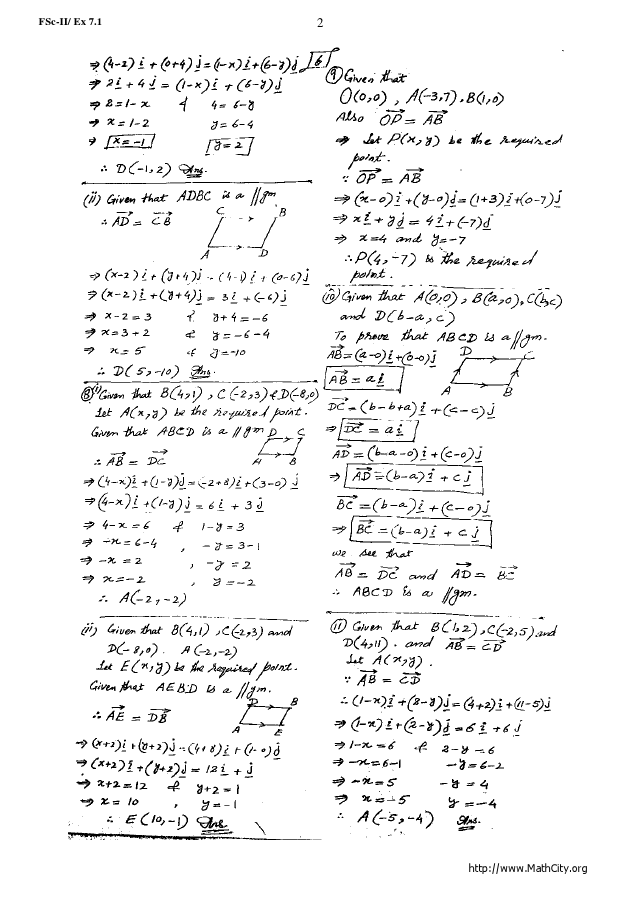 FSc-II/ Ex 7.1
2
⇒ (4-2) i + (0+4) j = (1-x) i + (6-y) j
⇒ 2 i + 4 j = (1-x) i + (6-y) j
⇒ 2 = 1-x & 4 = 6-y
⇒ x = 1-2 y = 6-4
⇒ x = -1 y = 2
∴ D(-1, 2) Ans.
(ii) Given that ADBC is a //gm
∴ AD = CB
C B
A D
⇒ (x-2) i + (y+4) j = (4-1) i + (0-6) j
⇒ (x-2) i + (y+4) j = 3 i + (-6) j
⇒ x-2 = 3 & y+4 = -6
⇒ x = 3+2 & y = -6-4
⇒ x = 5 & y = -10
∴ D(5, -10) Ans.
8 (i) Given that B(4,1), C(-2,3) & D(-8,0)
Let A(x,y) be the required point.
Given that ABCD is a //gm
D C
A B
∴ AB = DC
⇒ (4-x) i + (1-y) j = (-2+8) i + (3-0) j
⇒ (4-x) i + (1-y) j = 6 i + 3 j
⇒ 4-x = 6 & 1-y = 3
⇒ -x = 6-4 , -y = 3-1
⇒ -x = 2 , -y = 2
⇒ x = -2 , y = -2
∴ A(-2, -2)
(ii) Given that B(4,1), C(-2,3) and
D(-8,0). A(-2,-2)
Let E(x,y) be the required point.
Given that AEBD is a //gm.
D B
A E
∴ AE = DB
⇒ (x+2) i + (y+2) j = (4+8) i + (1-0) j
⇒ (x+2) i + (y+2) j = 12 i + j
⇒ x+2 = 12 & y+2 = 1
⇒ x = 10 , y = -1
∴ E(10, -1) Ans.
6
9 Given that
O(0,0), A(-3,7), B(1,0)
Also OP = AB
⇒ Let P(x,y) be the required
point.
∵ OP = AB
⇒ (x-0) i + (y-0) j = (1+3) i + (0-7) j
⇒ x i + y j = 4 i + (-7) j
⇒ x = 4 and y = -7
∴ P(4, -7) is the required
point.
10 Given that A(0,0), B(a,0), C(b,c)
and D(b-a, c)
To prove that ABCD is a //gm.
AB = (a-0) i + (0-0) j
D C
AB = a i
A B
DC = (b-b+a) i + (c-c) j
⇒ DC = a i
AD = (b-a-0) i + (c-0) j
⇒ AD = (b-a) i + c j
BC = (b-a) i + (c-0) j
⇒ BC = (b-a) i + c j
we see that
AB = DC and AD = BC
∴ ABCD is a //gm.
11 Given that B(1,2), C(-2,5) and
D(4,11). and AB = CD
Let A(x,y).
∵ AB = CD
∴ (1-x) i + (2-y) j = (4+2) i + (11-5) j
⇒ (1-x) i + (2-y) j = 6 i + 6 j
⇒ 1-x = 6 & 2-y = 6
⇒ -x = 6-1 -y = 6-2
⇒ -x = 5 -y = 4
⇒ x = -5 y = -4
∴ A(-5, -4) Ans.
http://www.MathCity.org